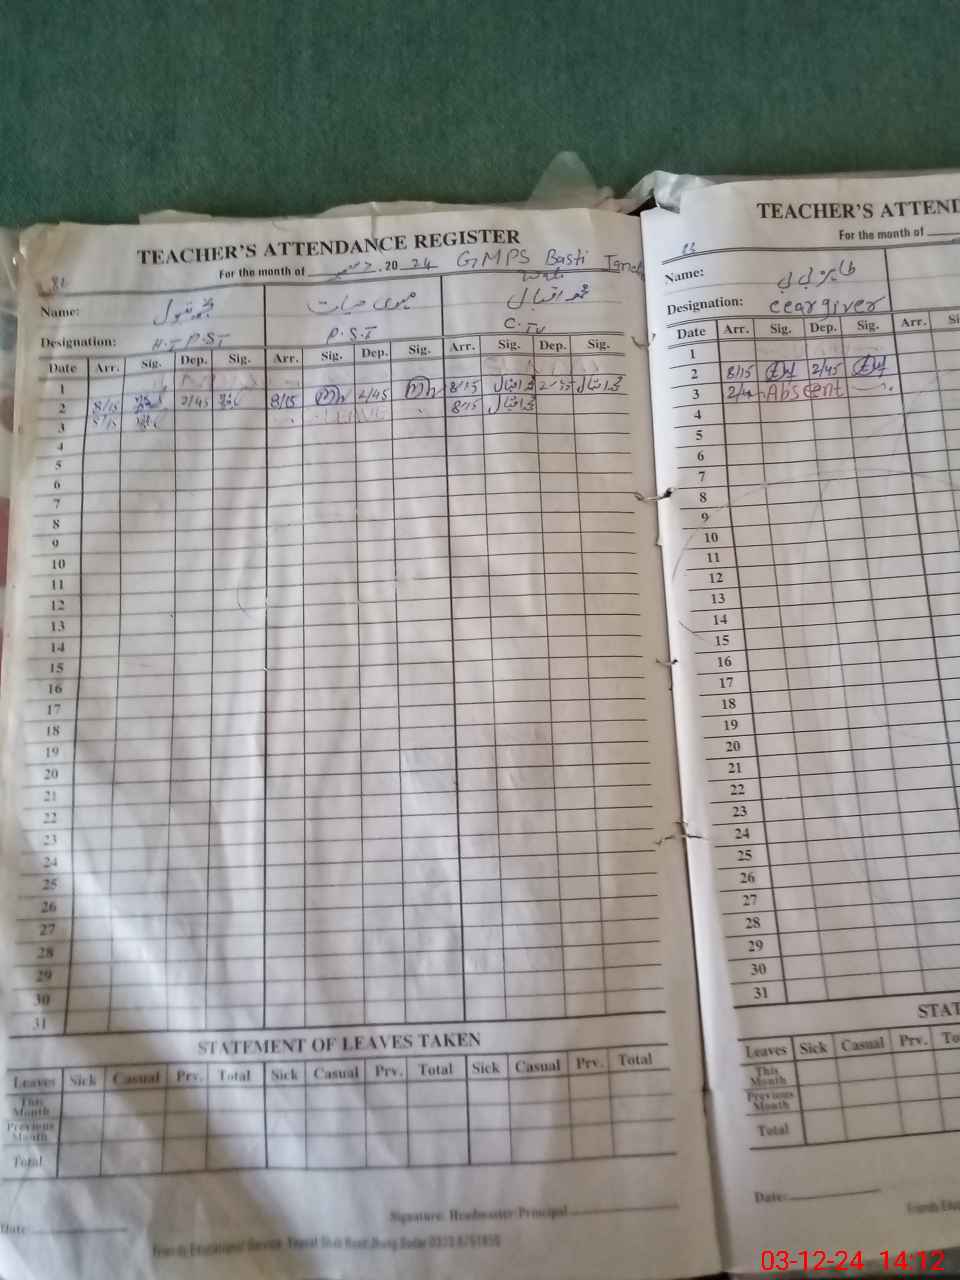 TEACHER'S ATTENDANCE REGISTER
For the month of دسمبر . 20 24 GMPS Basti
82
Name: محمد اقبال
Designation: H.T P.S.T P.S.T C.IV
Date Arr. Sig. Dep. Sig. Arr. Sig. Dep. Sig. Arr. Sig. Dep. Sig.
1
2 8/15 2/45 8/15 2/45 8/15 محمد اقبال 2/45 محمد اقبال
3 8/15 LEAVE 8/15 محمد اقبال
4
5
6
7
8
9
10
11
12
13
14
15
16
17
18
19
20
21
22
23
24
25
26
27
28
29
30
31
STATEMENT OF LEAVES TAKEN
Leaves Sick Casual Prv. Total Sick Casual Prv. Total Sick Casual Prv. Total
This Month
Previous Month
Total
Signature: Headmaster/Principal
Date:
TEACHER'S ATTEND
For the month of
83
Name:
Designation: ceargiver
Date Arr. Sig. Dep. Sig. Arr.
1
2 8/15 2/45
3 Absent
4
5
6
7
8
9
10
11
12
13
14
15
16
17
18
19
20
21
22
23
24
25
26
27
28
29
30
31
STAT
Leaves Sick Casual Prv. To
This Month
Previous Month
Total
Date:
03-12-24 14:12